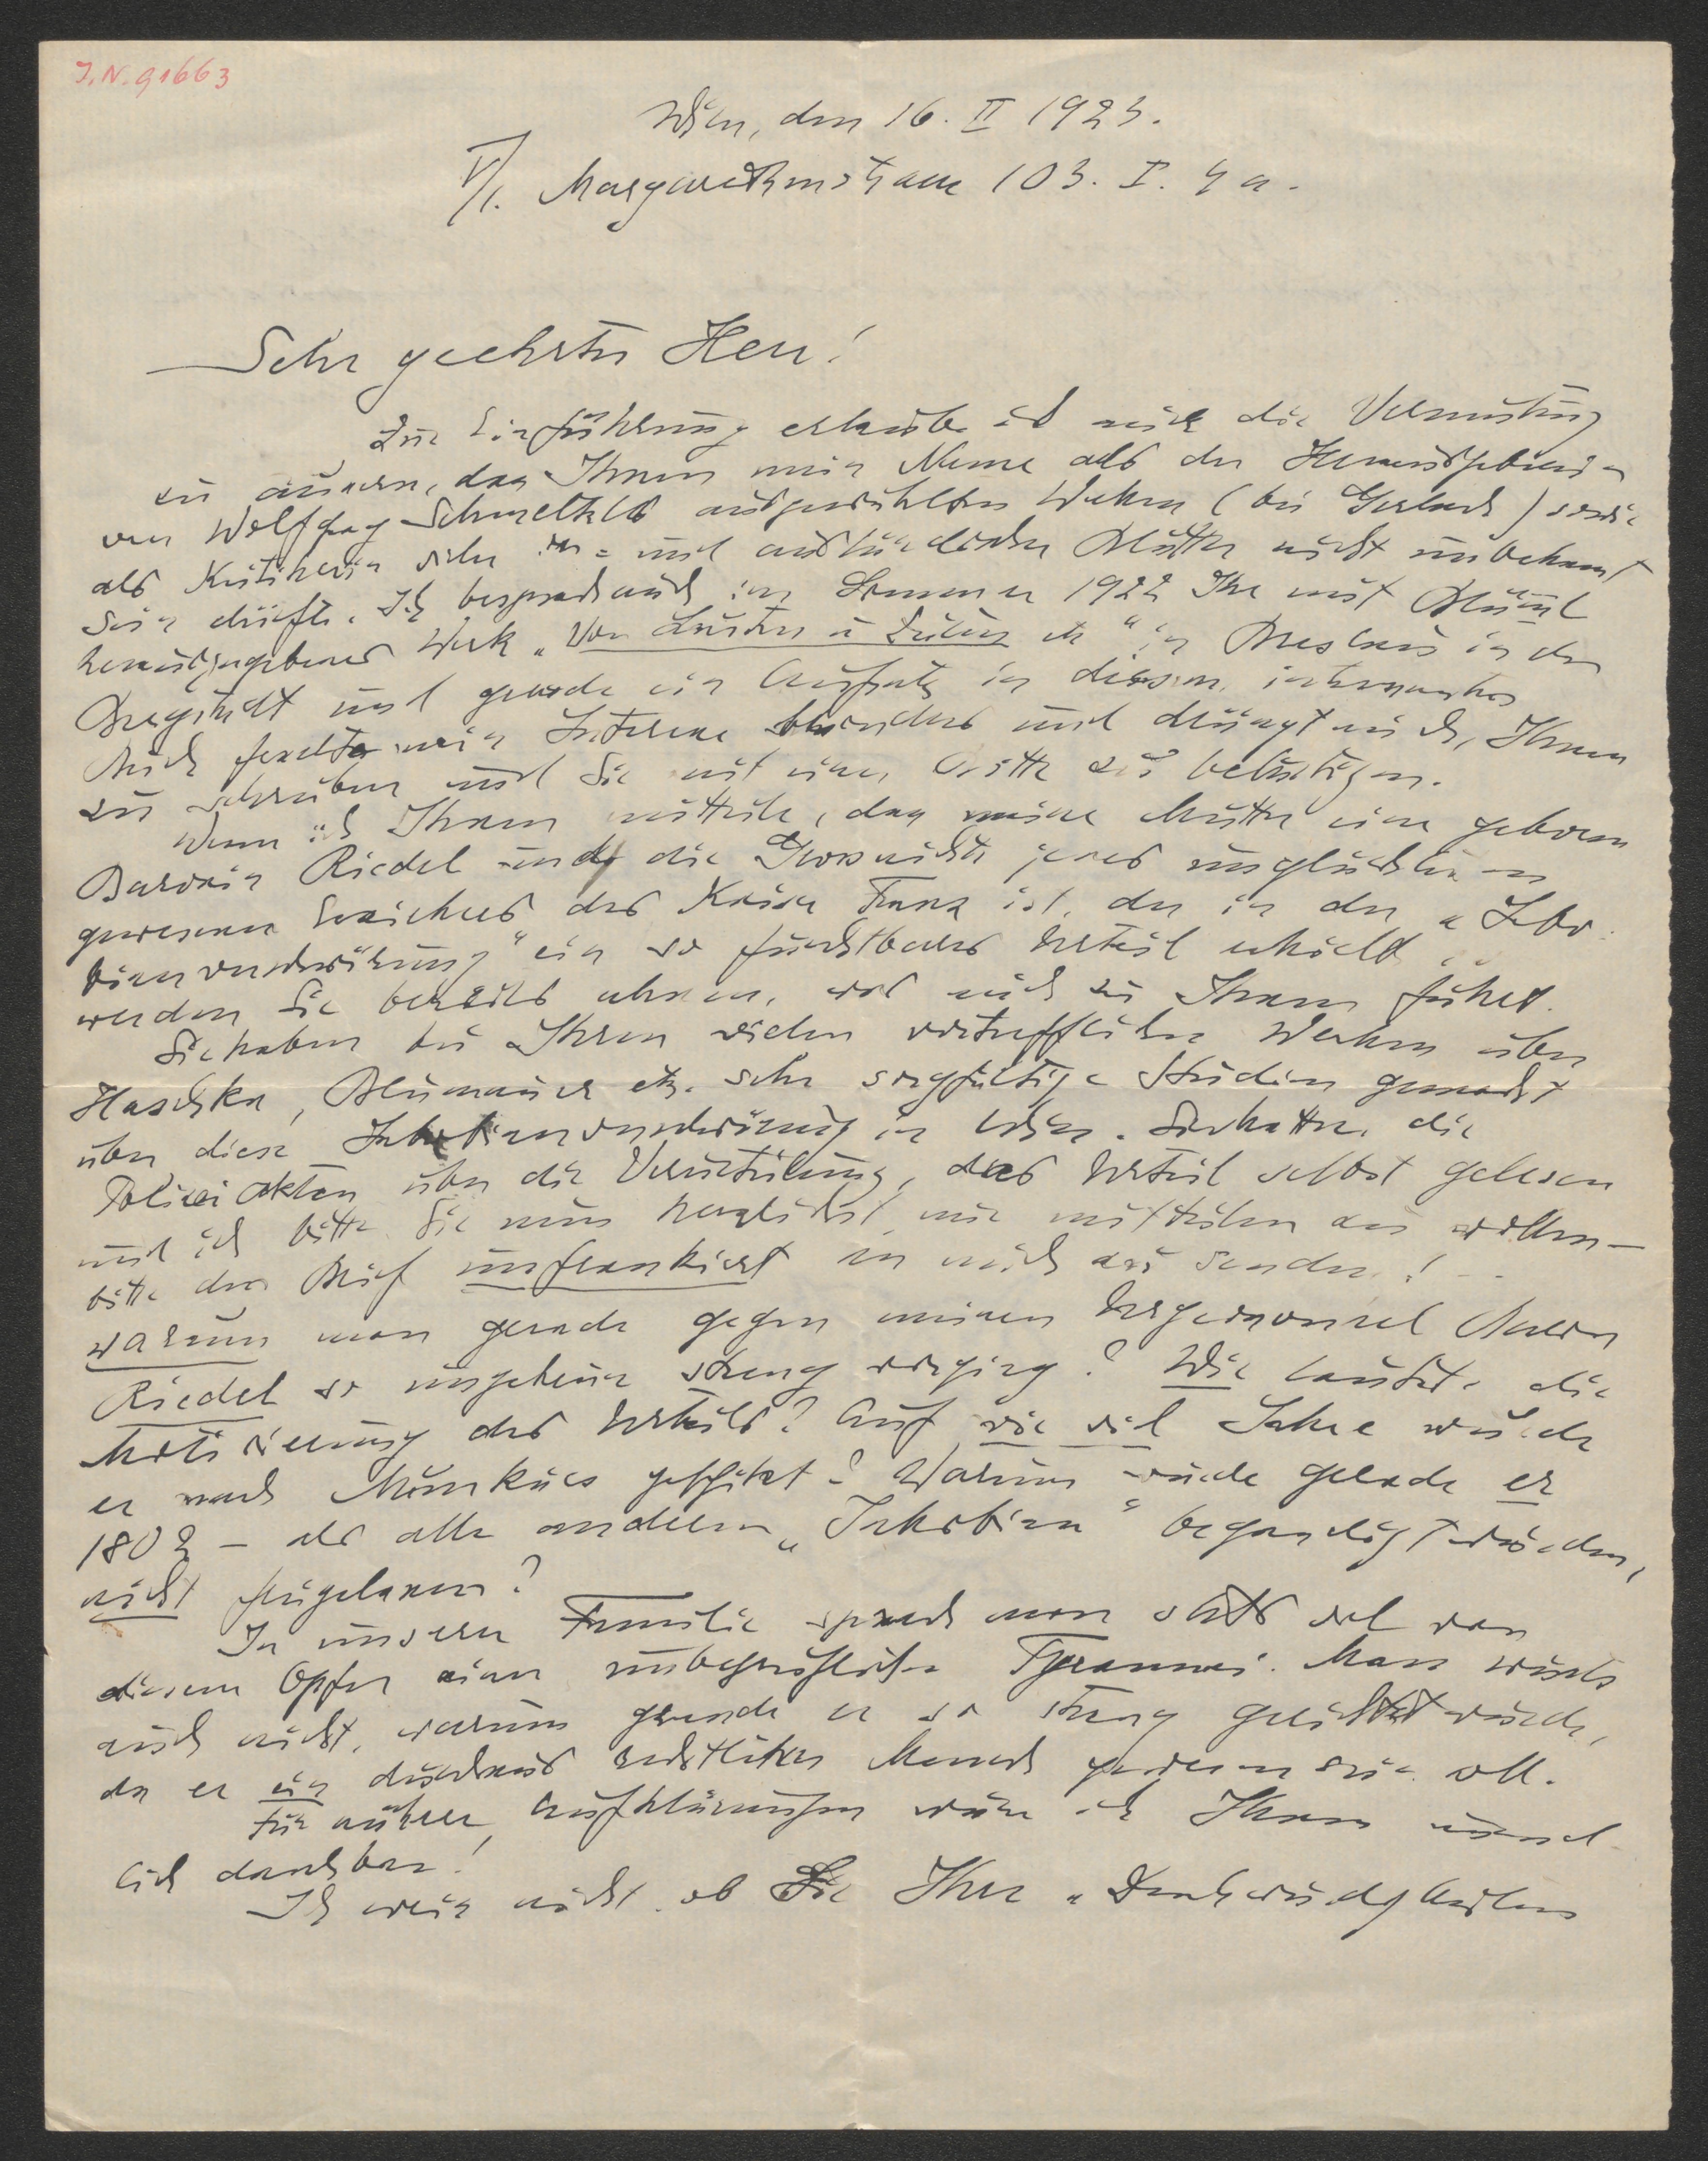 J.N. 91663
Wien, den 16. II 1923.
V/1. Margarethenstrasse 103. I. 4a.
Sehr geehrter Herr!
Zur Einführung erlaube ich mir die Vermutung
zu äussern, dass Ihnen mein Name als der Herausgeberin
von Wolfgang Schmeltzls ausgewählten Werken (bei Gerlach) sowie
als Kritikerin vieler in- und ausländischer Blätter nicht unbekannt
sein dürfte. Ich besprach auch im Sommer 1922 Ihr mit Blümml
herausgegebenes Werk „Von Leuten u Zeiten etc" in Breslau in der
Bergstadt und gerade ein Aufsatz in diesem interessanten
Buch fesselte mein Interesse besonders und drängt mich, Ihnen
zu schreiben und Sie mit einer Bitte zu belästigen.
Wenn ich Ihnen mitteile, dass meine Mutter eine geborene
Baronin Riedel und die Grossnichte jenes unglücklichen
gewesenen Erziehers des Kaiser Franz ist, der in der „Jako-
binerverschwörung" ein so furchtbares Urteil erhielt,
werden Sie bereits ahnen, was mich zu Ihnen führt.
Sie haben bei Ihren vielen vortrefflichen Werken über
Haschka, Blumauer etz. sehr sorgfältige Studien gemacht
über diese Jakobinerverschwörung in Wien. Sie hatten die
Polizei Akten über die Verurteilung, das Urteil selbst gelesen
und ich bitte Sie nun herzlichst mir mitteilen zu wollen –
bitte den Brief unfrankiert an mich zu senden! –
warum man gerade gegen meinen Urgrossonkel Baron
Riedel so ungeheuer streng vorging? Wie lautete die
Motivierung des Urteils? Auf wie viel Jahre wurde
er nach Munkács geschickt? Warum wurde gerade er
1802 – als alle anderen „Jakobiner" begnadigt wurden,
nicht freigelassen?
In unserer Familie sprach man stets viel von
diesem Opfer einer unbegreiflichen Tyrannei. Man wusste
auch nicht, warum gerade er so streng gerichtet wurde,
da er ein durchaus rechtlicher Mensch gewesen sein soll.
Für nähere Aufklärungen wäre ich Ihnen unend-
lich dankbar!
Ich weiss nicht, ob Sie Ihre „Denkwürdigkeiten